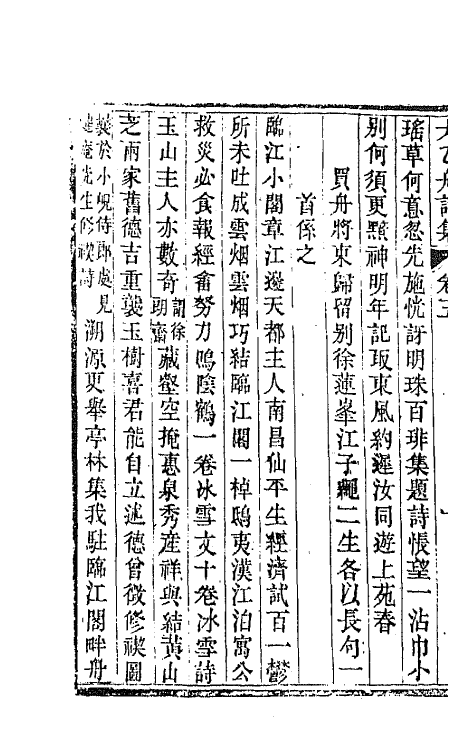 太乙舟詩集 卷五
瑤草何意忽先施恍訝明珠百琲集題詩悵望一沾巾小
別何須更黯神明年記取東風約遲汝同遊上苑春
買舟將東歸留別徐蓮峯江子繩二生各以長句一
首係之
臨江小閣章江邊天都主人南昌仙平生經濟試百一鬱
所未吐成雲烟雲烟巧結臨江閣一棹鴟夷漢江泊寓公
救災必食報經畬努力鳴陰鶴一卷冰雪文十卷冰雪詩
玉山主人亦數奇謂徐朗齋藏壑空掩惠泉秀産祥與結黃山
芝兩家舊德吉重襲玉樹喜君能自立述德曾徵修禊圖
裝於小峴侍郎處見健庵先生修禊詩溯源更舉亭林集我駐臨江閣畔舟